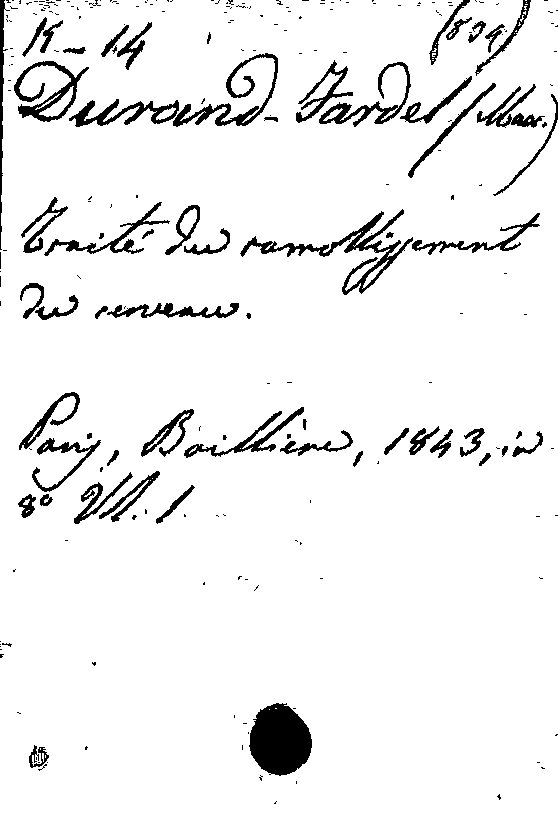 K-14 (839)
Durand-Fardel (Max.)
Traité du ramollissement
du cerveau.
Paris, Baillière, 1843, in
8º Vol. 1